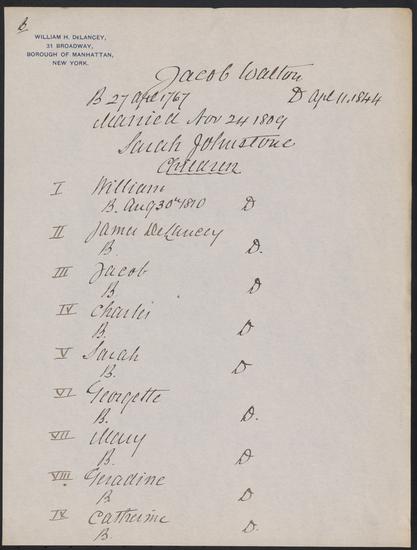 WILLIAM H. DELANCEY,
31 BROADWAY,
BOROUGH OF MANHATTAN,
NEW YORK.
Jacob Walton
B 27 Apl 1767 D Apl 11. 1844
Married Nov 24 1809
Sarah Johnstone
Children
I William
B. Aug 30th 1810 D
II James DeLancey
B. D.
III Jacob
B. D
IV Charles
B. D
V Sarah
B. D
VI Georgette
B. D.
VII Mary
B. D
VIII Geradine
B D
IX Catherine
B D.